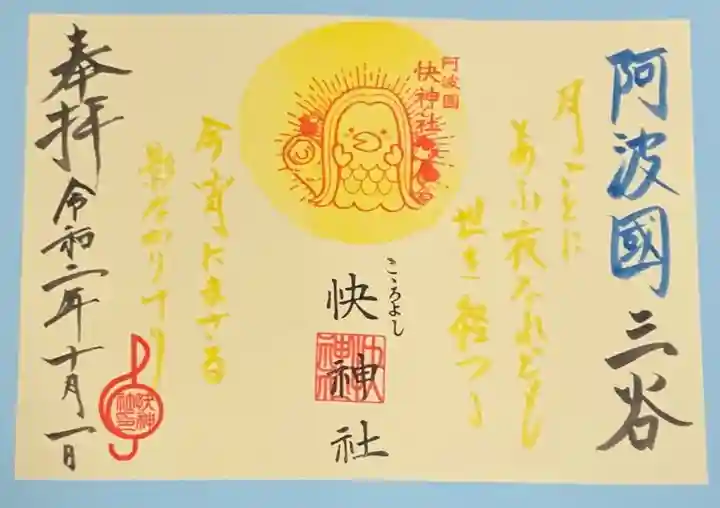 阿波國三谷
月ごとに
あふ夜なれども
世を経つつ
阿波國
快神社
こゝろよし
快神社
今宵にまさる
影なかりけり
奉拝
令和二年十月一日
快神
社印